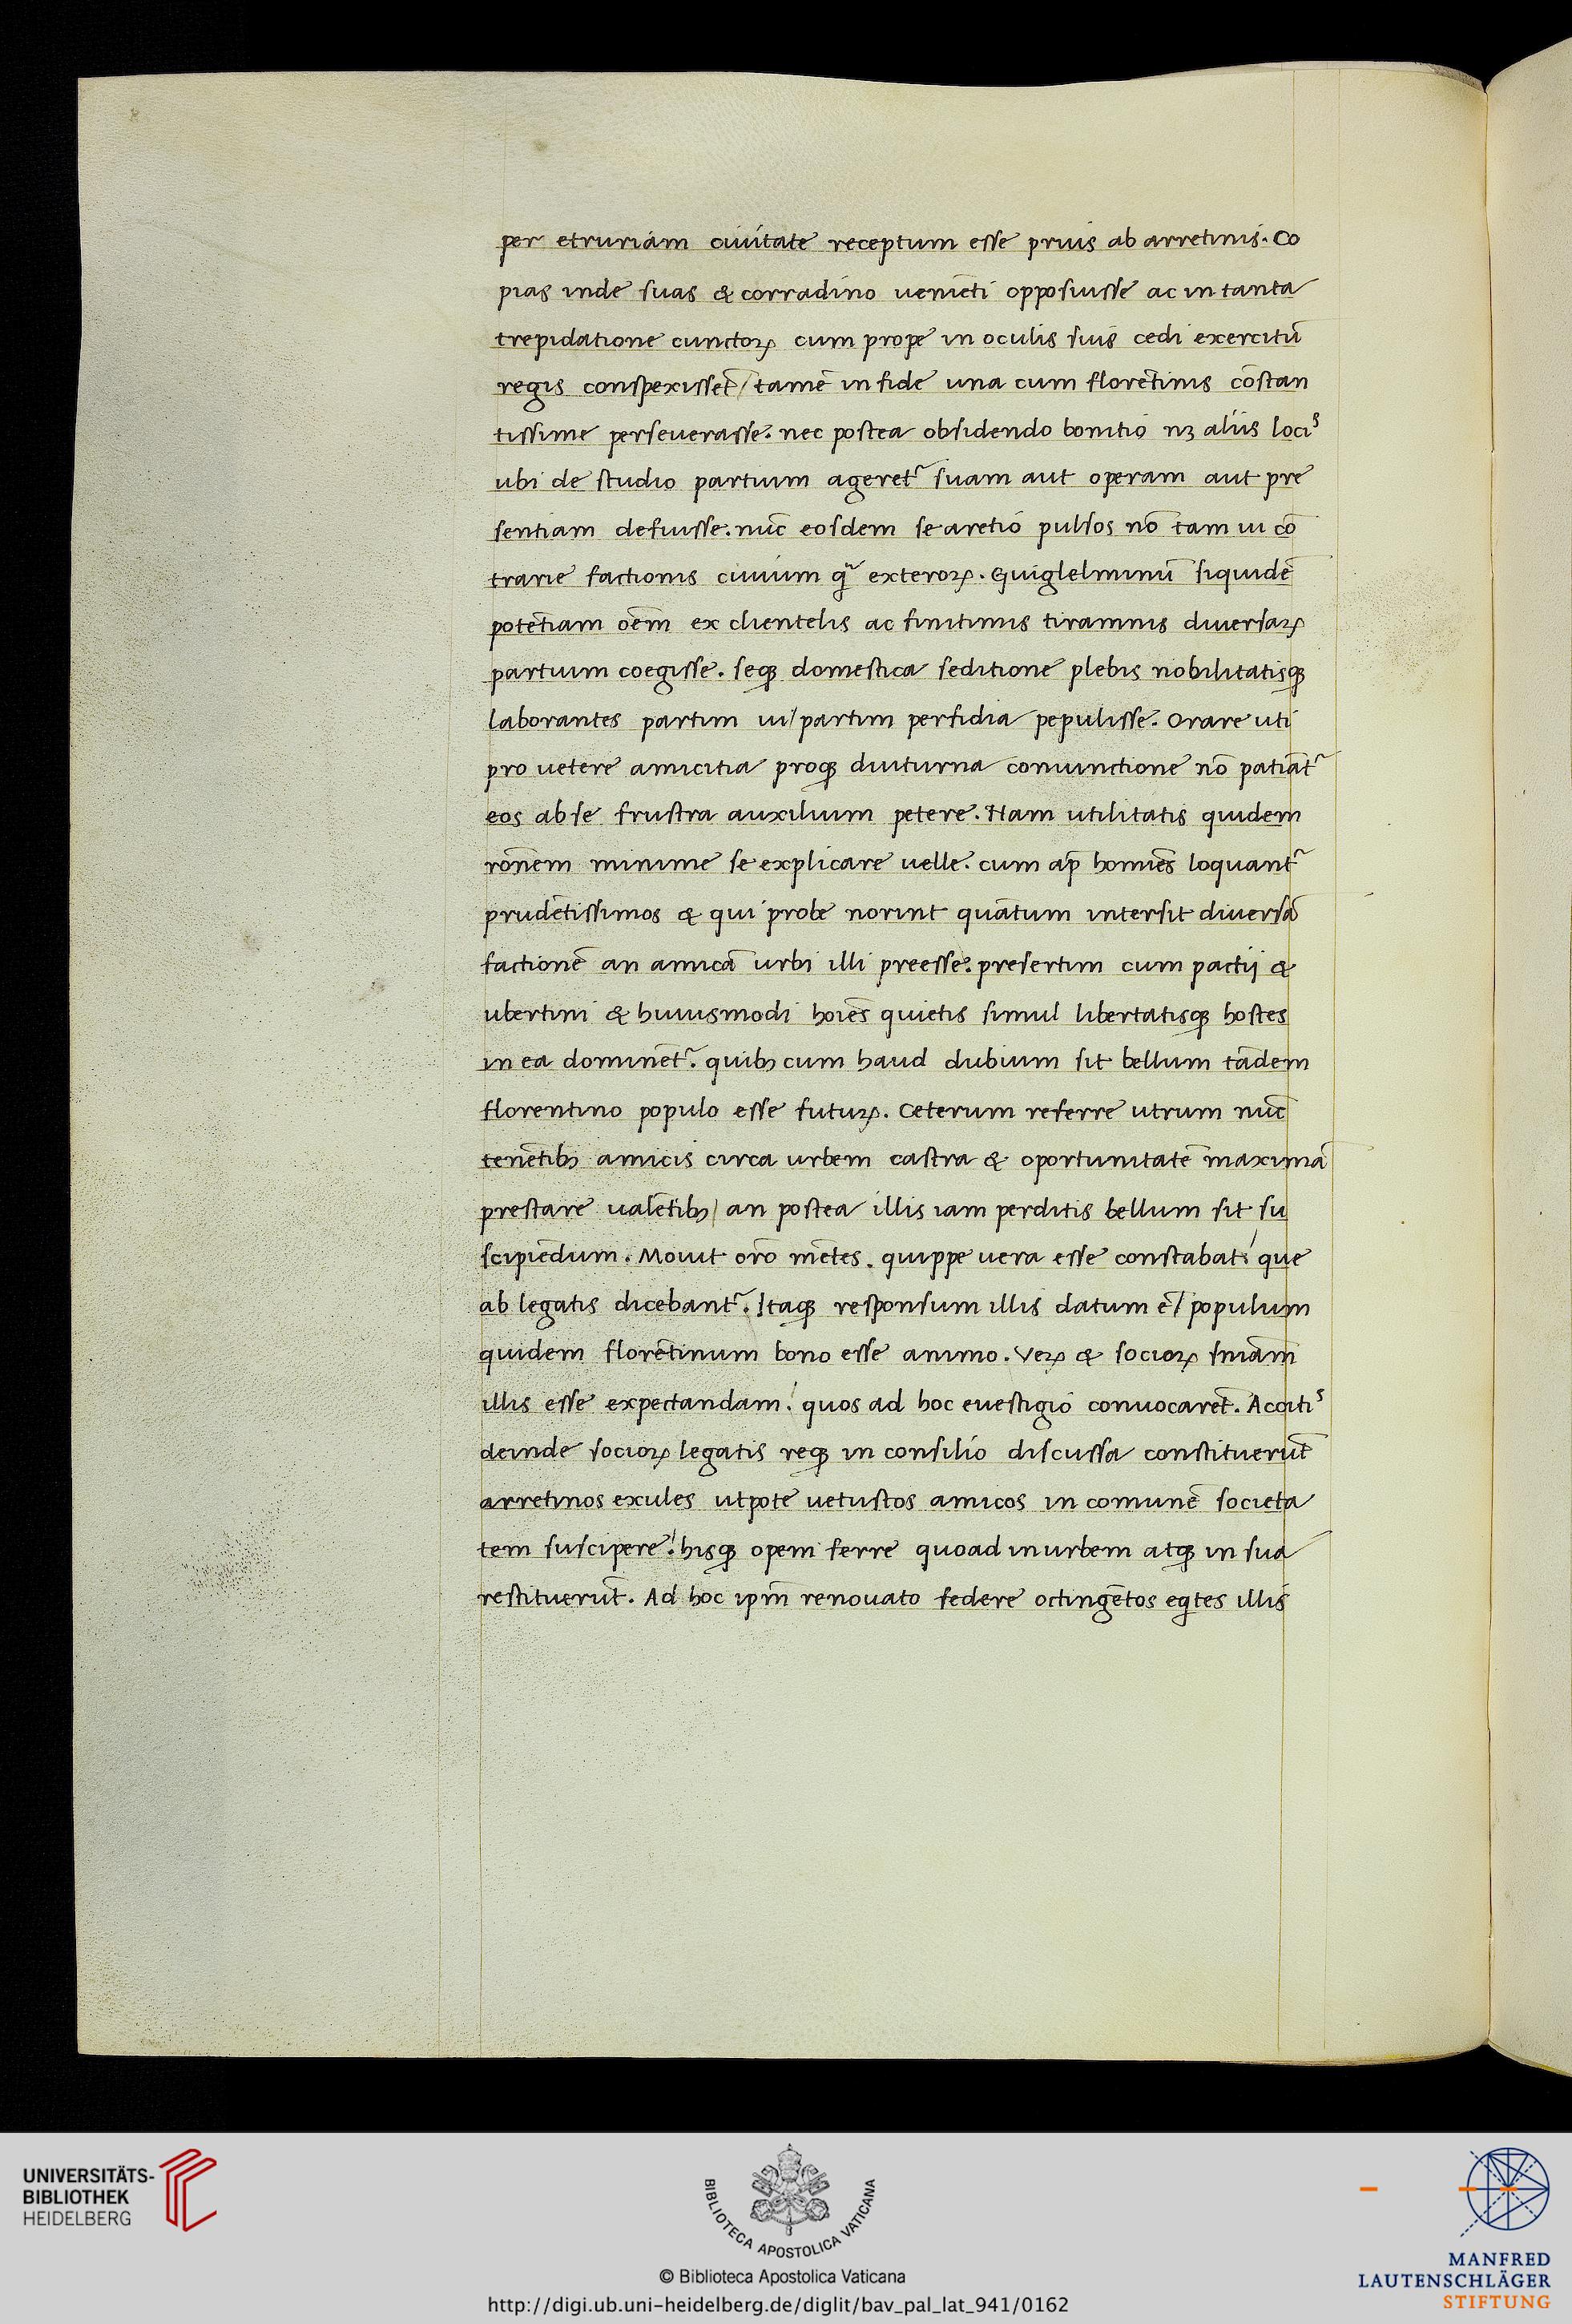 per etruriam ciuitate receptum esse prius ab arretinis. Co
pias inde suas & corradino ueniẽti opposuisse ac in tanta
trepidatione cunctoꝝ cum prope in oculis suis cedi exercitũ
regis conspexisset / tamẽ in fide una cum florẽtinis cõstan
tissime perseuerasse. nec postea obsidendo bonitio nꝫ aliis locis
ubi de studio partium ageret᷑ suam aut operam aut pre
sentiam defuisse. nũc eosdem se aretio pulsos nõ tam ui cõ
trarie factionis ciuium q̃ exteroꝝ. Guiglelminũ siquidẽ
potẽtiam oẽm ex clientelis ac finitimis tiramnis diuersaꝝ
partium coegisse. seqꝫ domestica seditione plebis nobilitatisqꝫ
laborantes partim ui / partim perfidia pepulisse. Orare uti
pro uetere amicitia proqꝫ diuturna coniunctione nõ patiãt᷑
eos ab se frustra auxilium petere. Nam utilitatis quidem
rõnem minime se explicare uelle. cum ap̃ homiẽs loquant᷑
prudẽtissimos & qui probe norint quãtum intersit diuersã
factionẽ an amicã urbi illi preesse. presertim cum pactij &
ubertini & huiusmodi hoiẽs quietis simul libertatisqꝫ hostes
in ea dominẽt᷑. quibꝫ cum haud dubium sit bellum tãdem
florentino populo esse futuꝝ. Ceterum referre utrum nũc
tenẽtibꝫ amicis circa urbem castra & oportunitatẽ maximã
prestare ualẽtibꝫ / an postea illis iam perditis bellum sit su
scipiẽdum. Mouit orõ mẽtes. quippe uera esse constabat que
ab legatis dicebant᷑. Itaqꝫ responsum illis datum ẽ / populum
quidem florẽtinum bono esse animo. Veꝝ & socioꝝ sniãm
illis esse expectandam. quos ad hoc euestigio conuocarẽt. Accitis
deinde socioꝝ legatis reqꝫ in consilio discussa constituerũt
arretinos exules utpote uetustos amicos in comunẽ societa
tem suscipere. hisqꝫ opem ferre quoad in urbem atqꝫ in sua
restituerũt. Ad hoc ipm̃ renouato federe octingẽtos eqtes illis
UNIVERSITÄTS-
BIBLIOTHEK
HEIDELBERG
BIBLIOTECA APOSTOLICA VATICANA
© Biblioteca Apostolica Vaticana
http://digi.ub.uni-heidelberg.de/diglit/bav_pal_lat_941/0162
MANFRED
LAUTENSCHLÄGER
STIFTUNG